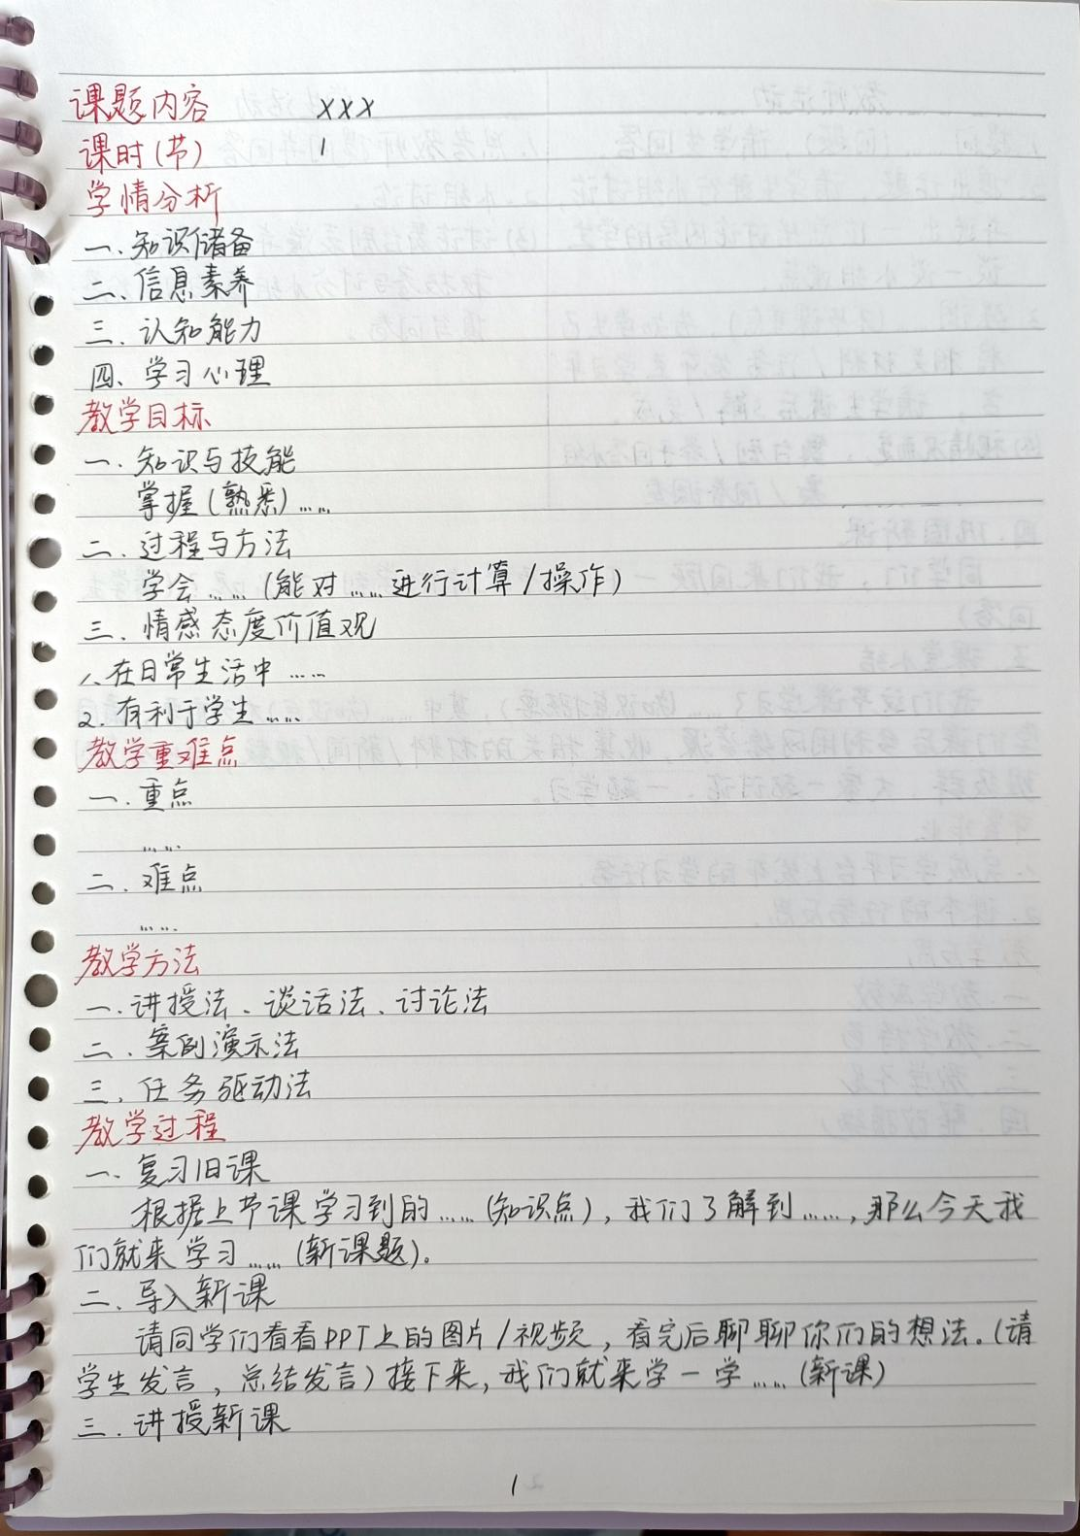 课题内容 xxx
课时(节) 1
学情分析
一.知识储备
二.信息素养
三.认知能力
四.学习心理
教学目标
一.知识与技能
掌握(熟悉)……
二.过程与方法
学会……(能对……进行计算/操作)
三.情感态度价值观
1.在日常生活中……
2.有利于学生……
教学重难点
一.重点
……
二.难点
……
教学方法
一.讲授法、谈话法、讨论法
二.案例演示法
三.任务驱动法
教学过程
一.复习旧课
根据上节课学习到的……(知识点),我们了解到……,那么今天我
们就来学习……(新课题)。
二.导入新课
请同学们看看PPT上的图片/视频,看完后聊聊你们的想法.(请
学生发言,总结发言)接下来,我们就来学一学……(新课)
三.讲授新课
1